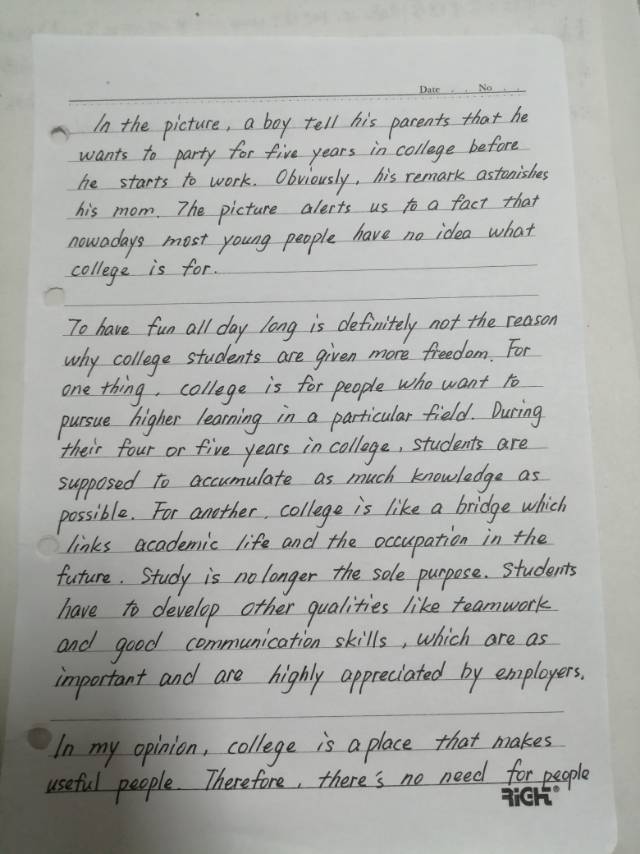 Date . . No . .
In the picture, a boy tell his parents that he
wants to party for five years in college before
he starts to work. Obviously, his remark astonishes
his mom. The picture alerts us to a fact that
nowadays most young people have no idea what
college is for.
To have fun all day long is definitely not the reason
why college students are given more freedom. For
one thing, college is for people who want to
pursue higher learning in a particular field. During
their four or five years in college, students are
supposed to accumulate as much knowledge as
possible. For another, college is like a bridge which
links academic life and the occupation in the
future. Study is no longer the sole purpose. Students
have to develop other qualities like teamwork
and good communication skills, which are as
important and are highly appreciated by employers.
In my opinion, college is a place that makes
useful people. Therefore, there's no need for people
RiCH®